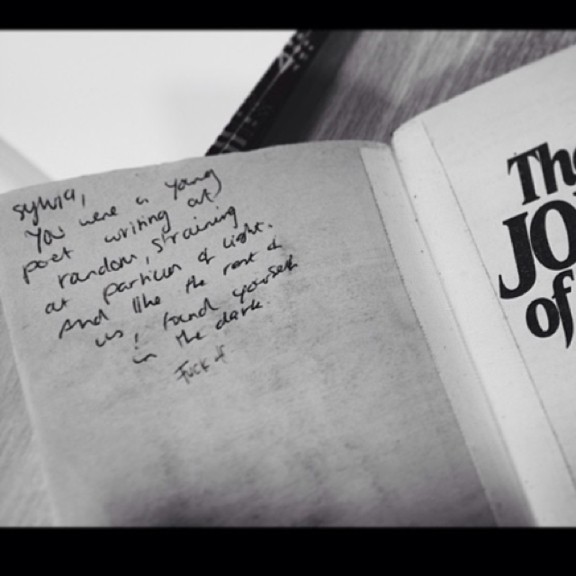 Sylvia,
You were a young
poet writing at
random, straining
at particles of light.
And like the rest of
us, found yourself
in the dark.
Fuck of
The
JO
of